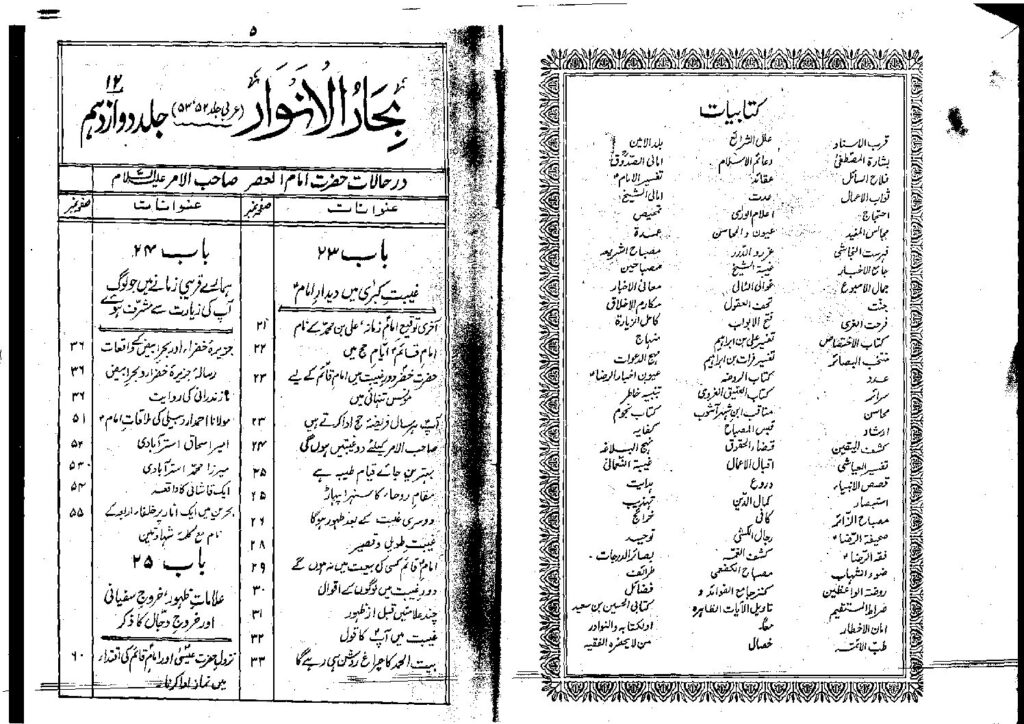 کتابیات
قرب الاسناد
بشارة المصطفیٰ
فلاح السائل
ثواب الاعمال
احتجاج
مجالس المفید
فہرست النجاشی
جامع الاخبار
جمال الاسبوع
جنت
فرحت الغری
کتاب الاختصاص
منتخب البصائر
عدد
سرائر
محاسن
ارشاد
کشف الیقین
تفسیر العیاشی
قصص الانبیاء
استبصار
مصباح الزائر
صحیفة الرضاؑ
فقہ الرضاؑ
ضوء الشہاب
روضة الواعظین
صراط المستقیم
امان الاخطار
طب الائمہ
علل الشرائع
دعائم الاسلام
عقائد
عدت
اعلام الوریٰ
عیون والمحاسن
غرر و الدرر
غیبة الشیخ
غوالی اللئالی
تحف العقول
فتح الابواب
تفسیر علی بن ابراہیم
تفسیر فرات بن ابراہیم
کتاب الروضہ
کتاب العتیق الغروی
مناقب ابن شہر آشوب
قبس المصباح
قضاء الحقوق
اقبال الاعمال
دروع
کمال الدین
کافی
رجال الکشی
کشف الغمہ
مصباح الکفعمی
کنز جامع الفوائد و
تاویل الآیات الظاہرہ
خصال
بلد الامین
امالی الصدوق
تفسیر الامامؑ
امالی الشیخ
تمحیص
عمدة
مصباح الشریعہ
مصباحین
معانی الاخبار
مکارم الاخلاق
کامل الزیارة
منہاج
مہج الدعوات
عیون اخبار الرضاؑ
تنبیہ خاطر
کتاب نجوم
کفایہ
نہج البلاغہ
غیبة النعمانی
ہدایت
تہذیب
خرائج
توحید
بصائر الدرجات
طرائف
فضائل
کتابی الحسین بن سعید
اولکتابہ والنوادر
من لا یحضرہ الفقیہ
۵
بحار الانوار (عربی جلد ۵۲، ۵۳) جلد دوازدہم ۱۲
در حالات حضرت امام العصر صاحب الامر علیہ السلام
عنوانات صفحہ نمبر
باب ۲۳
غیبتِ کبریٰ میں دیدارِ امامؑ
آخری توقیع امام زمانہؑ علی بن محمد کے نام ۲۱
امام قائمؑ ایامِ حج میں ۲۲
حضرت خضر دورِ غیبت میں امام قائم کے لیے ۲۳
مونسِ تنہائی ہیں
آپ ہر سال فریضۂ حج ادا کرتے ہیں ۲۳
صاحب الامر کیلئے دو غیبتیں ہوں گی ۲۴
بہترین جائے قیام طیبہ ہے ۲۵
مقام روحاء کا سنہرا پہاڑ ۲۵
دوسری غیبت کے بعد ظہور ہوگا ۲۶
غیبت طویل و قصیر ۲۸
امام قائم کسی کی بیعت میں نہ ہوں گے ۲۹
دورِ غیبت میں لوگوں کے اقوال ۳۰
چند علامتیں قبل از ظہور ۳۱
غیبت میں آپؑ کا قول ۳۲
بیت الحمد کا چراغ روشن ہی رہے گا ۳۳
عنوانات صفحہ نمبر
باب ۲۴
ہمارے قریبی زمانے میں جو لوگ
آپ کی زیارت سے مشرف ہوئے
جزیرۂ خضراء اور بحرِ ابیض کے واقعات ۳۶
رسالہ جزیرۂ خضراء و بحرِ ابیض ۳۶
مازندرانی کی روایت ۳۶
مولانا احمد اردبیلی کی ملاقات امامؑ ۵۱
امیر اسحاق استرآبادی ۵۲
میرزا محمد استرآبادی ۵۳
ایک قاشانی کا واقعہ ۵۴
بحرین میں ایک انار پر خلفاء اربعہ کے ۵۵
نام مع کلمۂ شہادتین
باب ۲۵
علاماتِ ظہور، خروجِ سفیانی
اور خروجِ دجال کا ذکر
نزولِ حضرت عیسیٰؑ اور امام قائم کی اقتدار ۶۰
میں نماز ادا کرنا